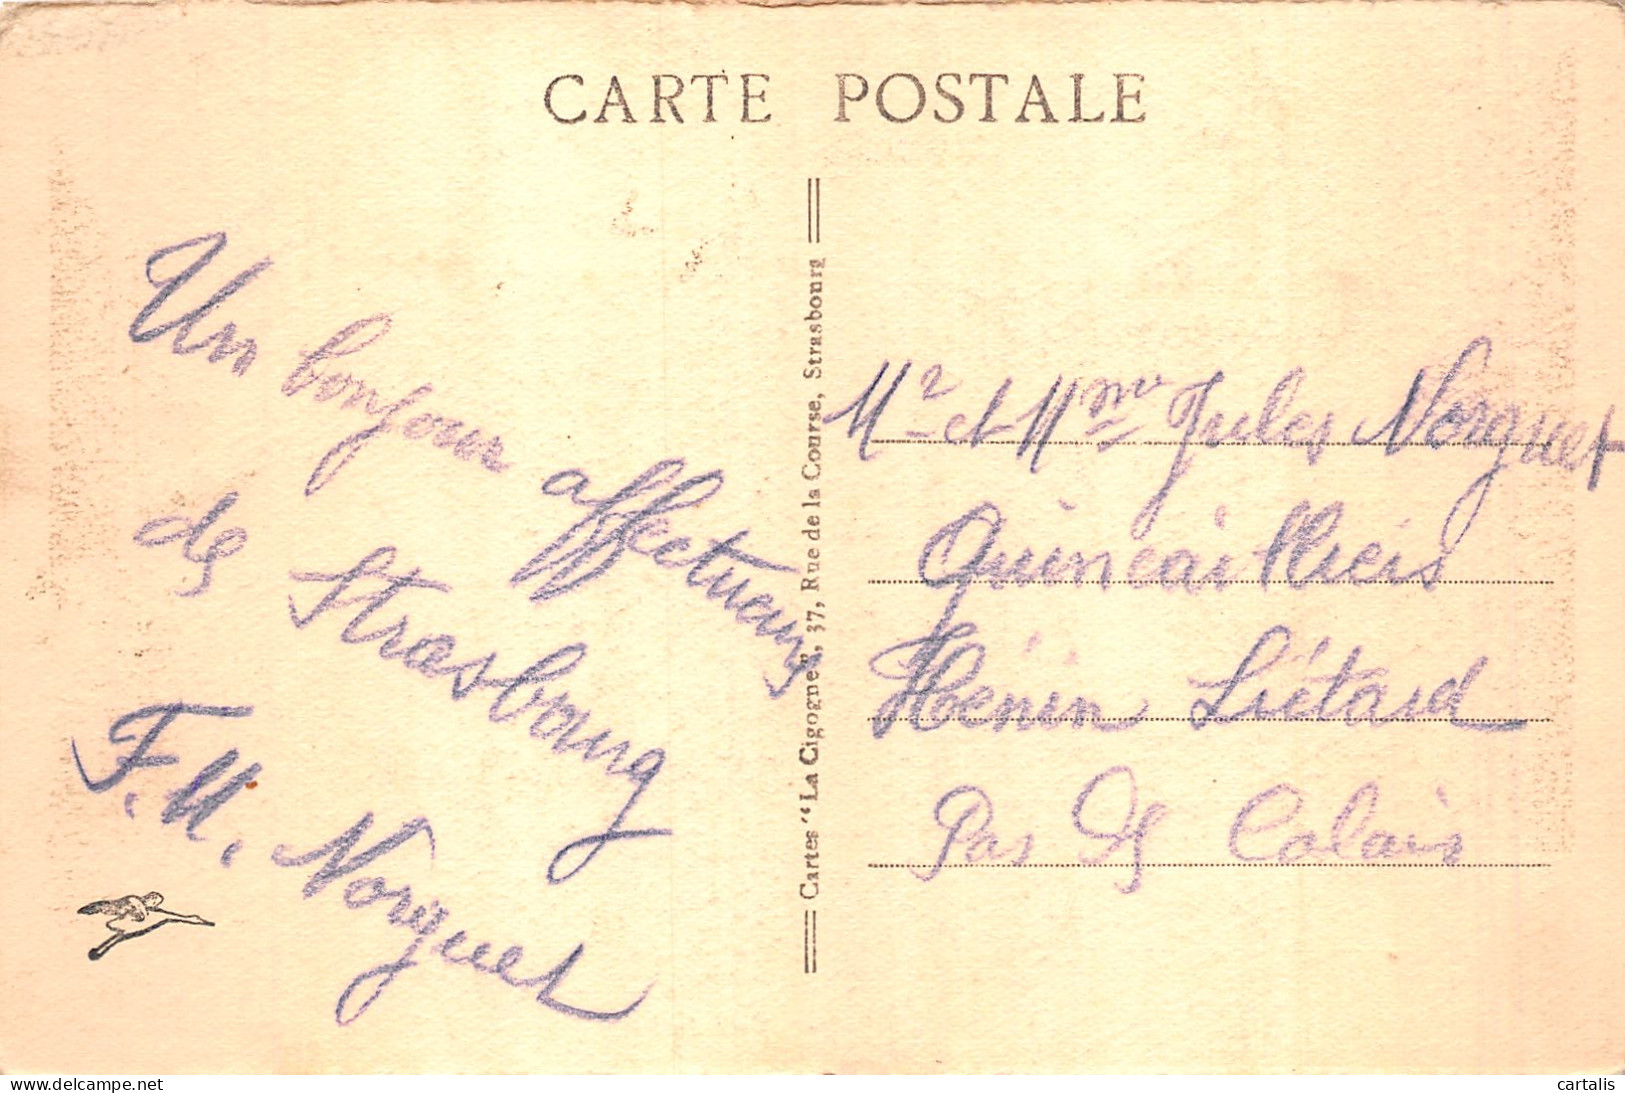 CARTE POSTALE
Un bonjour affectueux
de Strasbourg
F. M. Norguet
Cartes "La Cigogne", 37, Rue de la Course, Strasbourg
Mr et Mme Jules Norguet
Quincailliers
Hénin Liétard
Pas de Calais
www.delcampe.net
cartalis